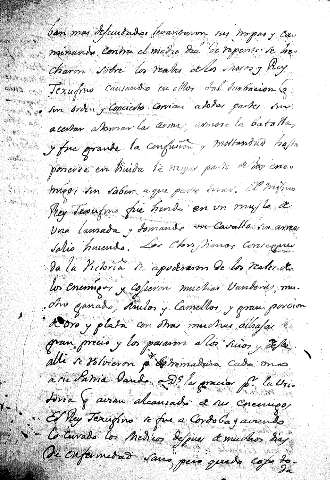 ban mas descuidados levantaron sus tropas y ca
minando contra el medio dia de repente se he
charon sobre los reales de los Moros y Rey
Texufino causando en ellos tal turbacion q.
sin orden y concierto corrian a todas partes sin
acertar a tomar las armas
y fue grande la confusion y mortandad hasta
ponerse en huida la mejor parte de los ene
migos sin saber a que parte El mismo
Rey Texufino fue herido en un muslo de
una lanzada y tomando un Cavallo sin
salio huiendo. Los Christianos consegui
da la Victoria se apoderaron de los reales de
los enemigos y cojieron muchas Vanderas, mu
cho ganado, Mulos y Camellos, y gran porcion
de oro y plata con otras muchas alajas de
gran precio y los pasaron a los suios, y desde
alli se volvieron p.a Extremadura cada uno
a su Patria dando a D.s las gracias p.r la Vic
toria q. avian alcanzado de sus enemigos
El Rey Texufino se fue a Cordoba y aviendo
lo curado los Medicos despues de muchos dias
de enfermedad sano, pero quedo cojo to
da